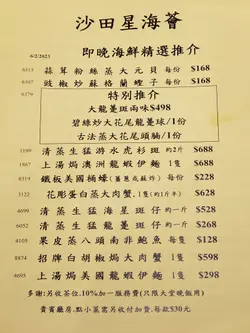 沙田星海薈
6/2/2023
即晚海鮮精選推介
6313 蒜茸粉絲蒸大元貝 每份 $168
6307 豉椒炒蘇格蘭蟶子 每份 $168
6379
特別推介
大龍躉斑兩味$498
碧綠炒大花尾龍躉球/1份
古法蒸大花尾頭腩/1份
1189 清蒸生猛游水虎杉斑 約2斤 $688
1867 上湯焗澳洲龍蝦伊麵 1隻 $688
6319 鐵板美國桶蠔
3122 花彫蛋白蒸大肉蟹 $628
清蒸生猛海星斑仔 約一斤 $528
6052 清蒸生猛龍躉斑仔 約一斤 $268
4105 果皮蒸八頭南非鮑魚 每隻 $128
8874 招牌白胡椒焗大肉蟹 1隻 $598
4695 上湯焗美國龍蝦伊麵 1隻 $298
多謝:另收茶位.10%加一服務費(只限大堂晚飯用)
貴賓廳房.點小菜需另收付加費.每款$30元